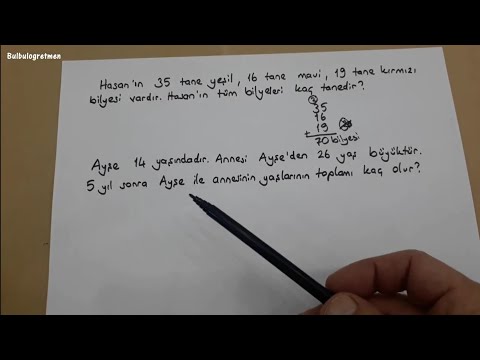 Bulbulogretmen
Hasan'ın 35 tane yeşil, 16 tane mavi, 19 tane kırmızı
bilyesi vardır. Hasan'ın tüm bilyeleri kaç tanedir?
2
35
16
+ 19
70 bilyesi
Ayşe 14 yaşındadır. Annesi Ayşe'den 26 yaş büyüktür.
5 yıl sonra Ayşe ile annesinin yaşlarının toplamı kaç olur?